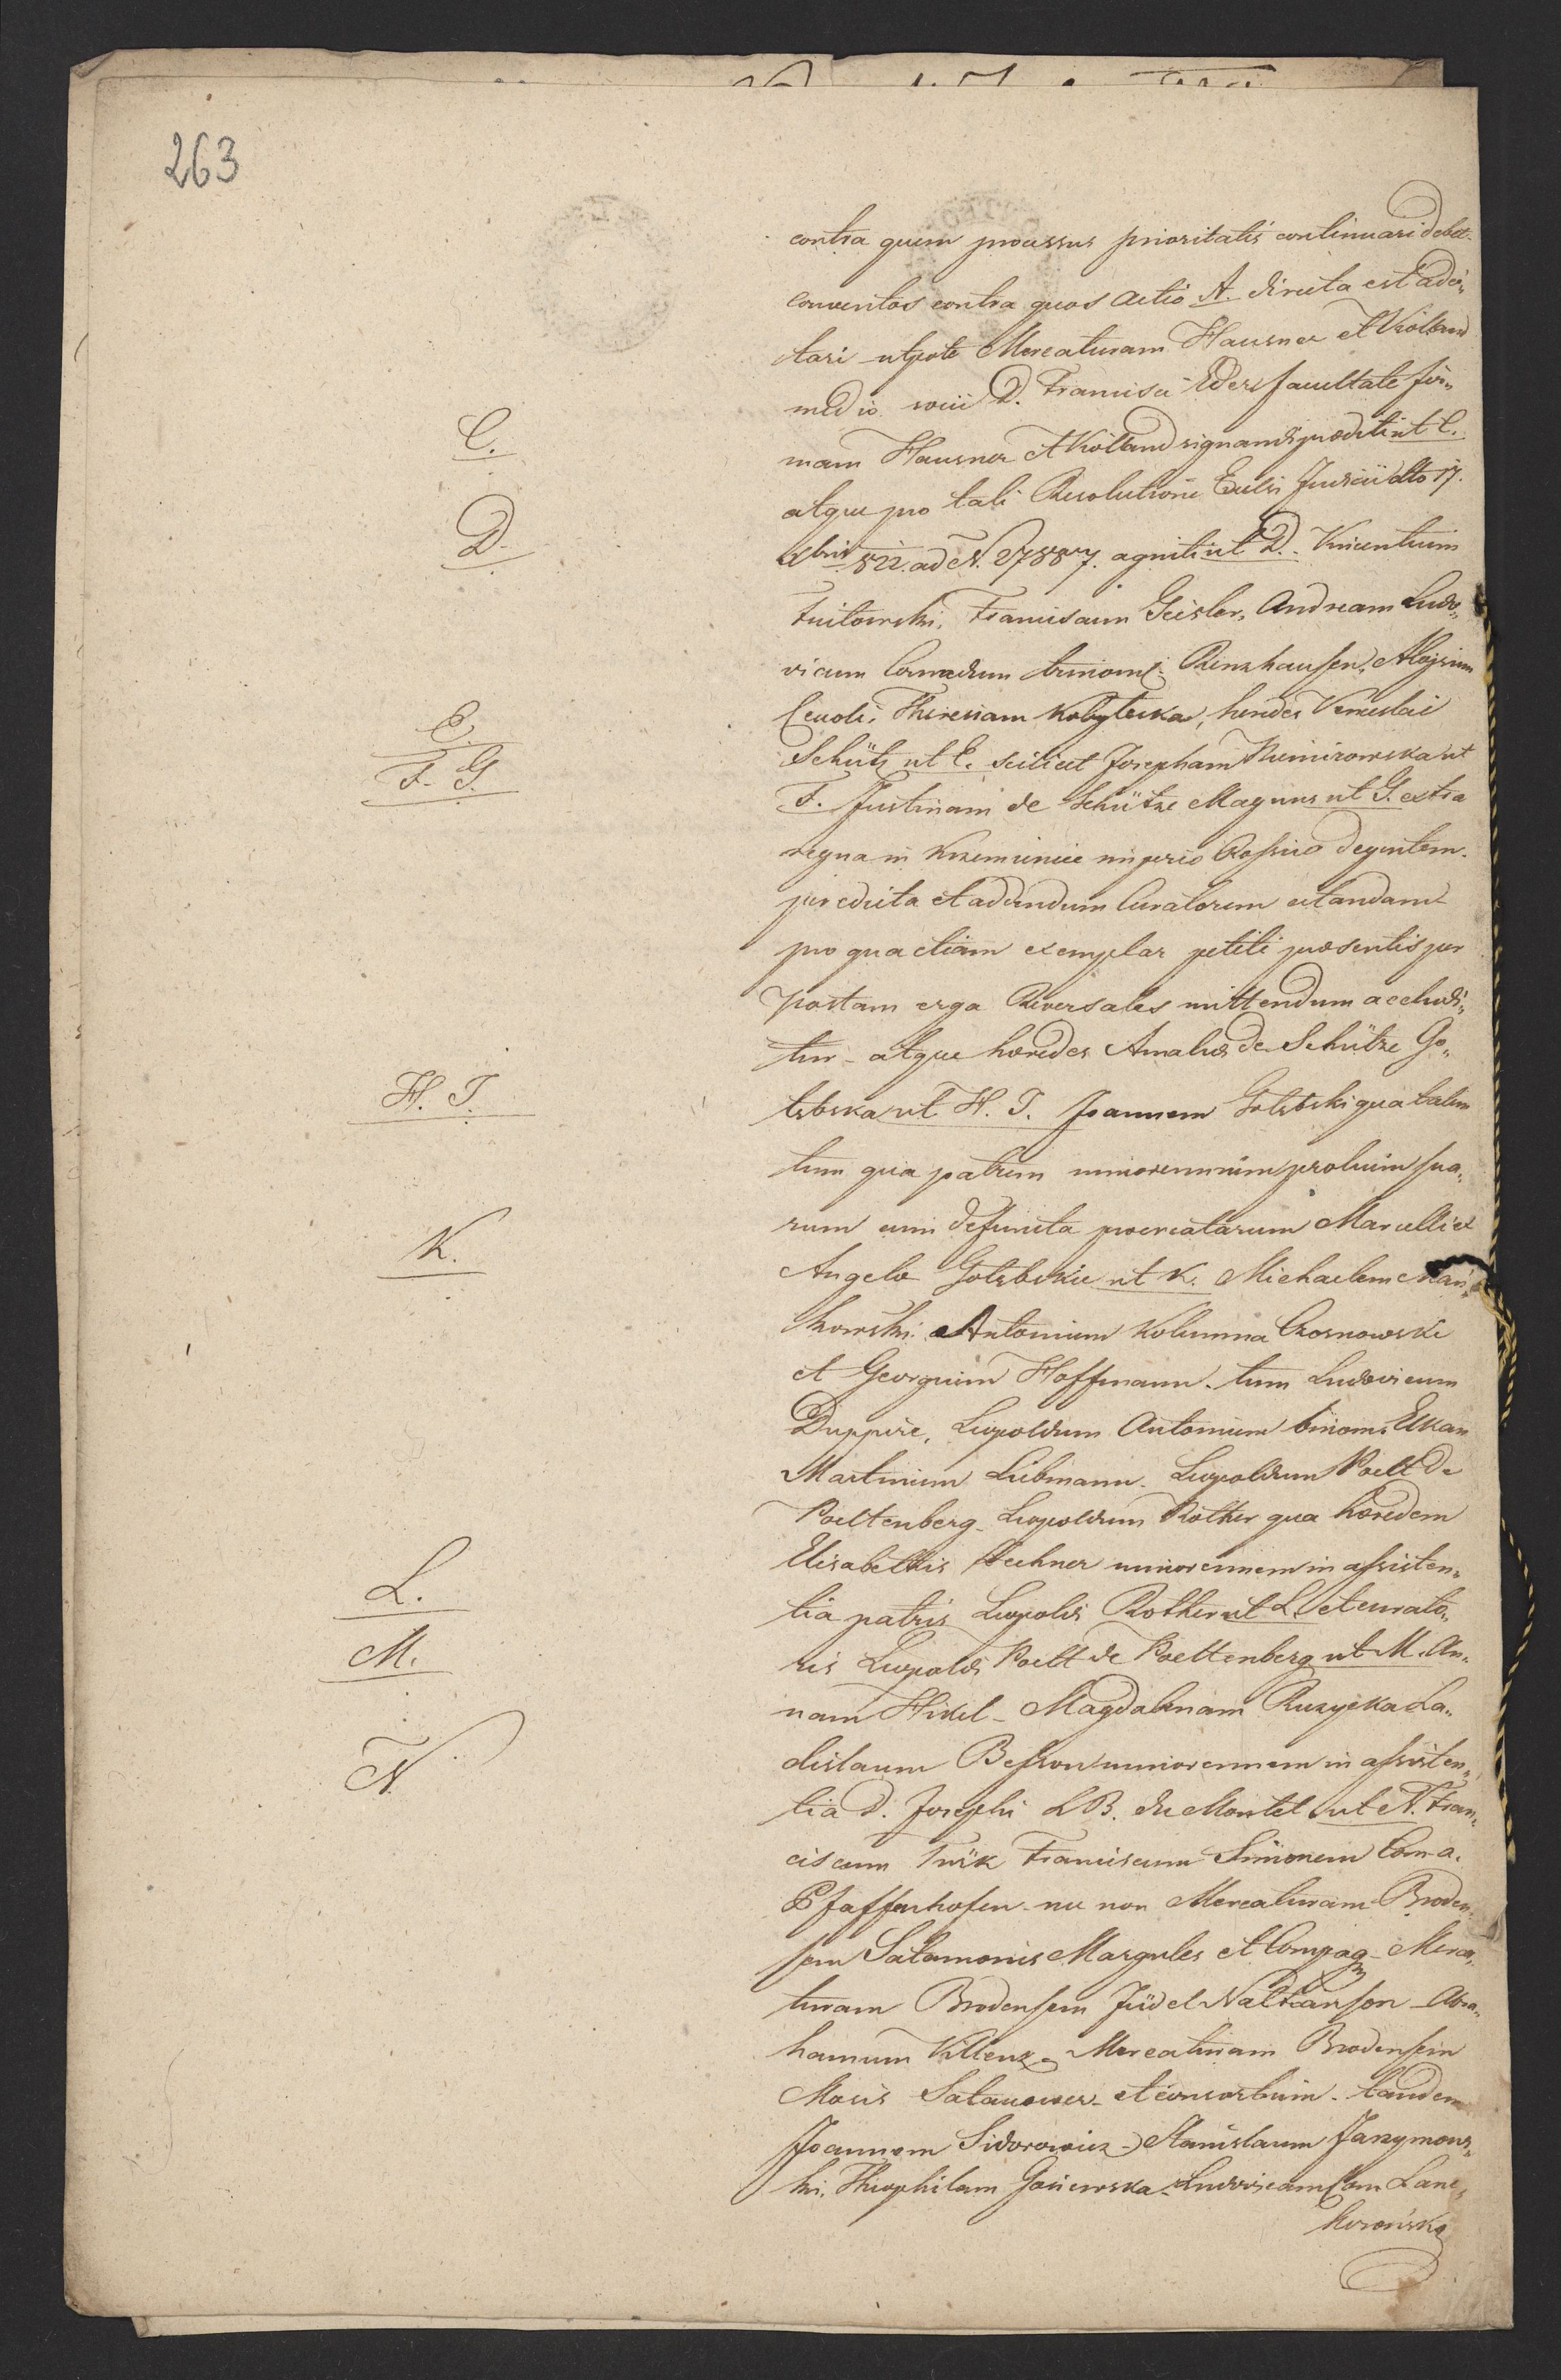 263
contra quem processus prioritatis continuari debet
conventos contra quos actio A. directa est adci„
tari utpote Mercaturam Hausner et Violland
medio socii D. Francisci Eder facultate fir„
C.
mam Hausner et Violland signandi praediti ut C.
atque pro tali Resolutione Exclsi Judicii dto 17.
D.
Xbris 822. ad N. 27887. agniti ut D. Vincentium
Franciscum Geisler, Andream Ludo„
vicum Conradum trinom: Rinzhausen, Aloysium
Ceuoli, Theresiam Kobylecka, heredes Venceslai
E.
Schütz ut E. scilicet Josepham Kunizowska ut
F. G.
F. Justinam de Schütze Magnus ut G. extra
regna in Krzemieniec imperio Rossico degentem
per edicta et addendum Curatorem citandam
pro qua etiam exemplar petiti praesentis per
Postam erga Reversales mittendum accludi„
tur - atque haeredes Amaliae de Schütze Go„
H. I.
lębska ut H. I. Joannem Gołębski qua talem
tum qua patrem minorennium prolium sua„
rum cum defuncta procreatarum Marcelli et
K.
Angelae Gołębskie ut K. Michaelem
kowski Antonium Kolumna Czosnowski
et Georgium Hoffmann. tum Ludovicum
Duppire, Leopoldum Antonium binom. Elkan
Martinum Liebmann. Leopoldum Poelt de
Poeltenberg - Leopoldum Rother qua haeredem
Elisabethis Lechner minorennem in assisten„
L.
tia patris Leopoldi Rother ut L. et curato„
M.
ris Leopoldi Poelt de Poeltenberg ut M. An„
nam Hikel - Magdalenam Ruzycka La„
dislaum Besson minorennem in assisten„
N.
tia D. Josephi LB. du Montet ut N. Fran„
ciscum Türk Franciscum Simonem Com. a.
Pfaffenhofen - nec non Mercaturam Broden„
sem Salamonis Margules et Compag - Merca„
turam Brodensem Jüdel Nathanson - Abra„
hamum Mercaturam Brodensem
Mosis Satanower - et consortium - tandem
Joannem Sidorowicz - Stanislaum Jaxymows„
ki, Theophilam Gosiewska - Ludovicam Com Lanc„
korońska